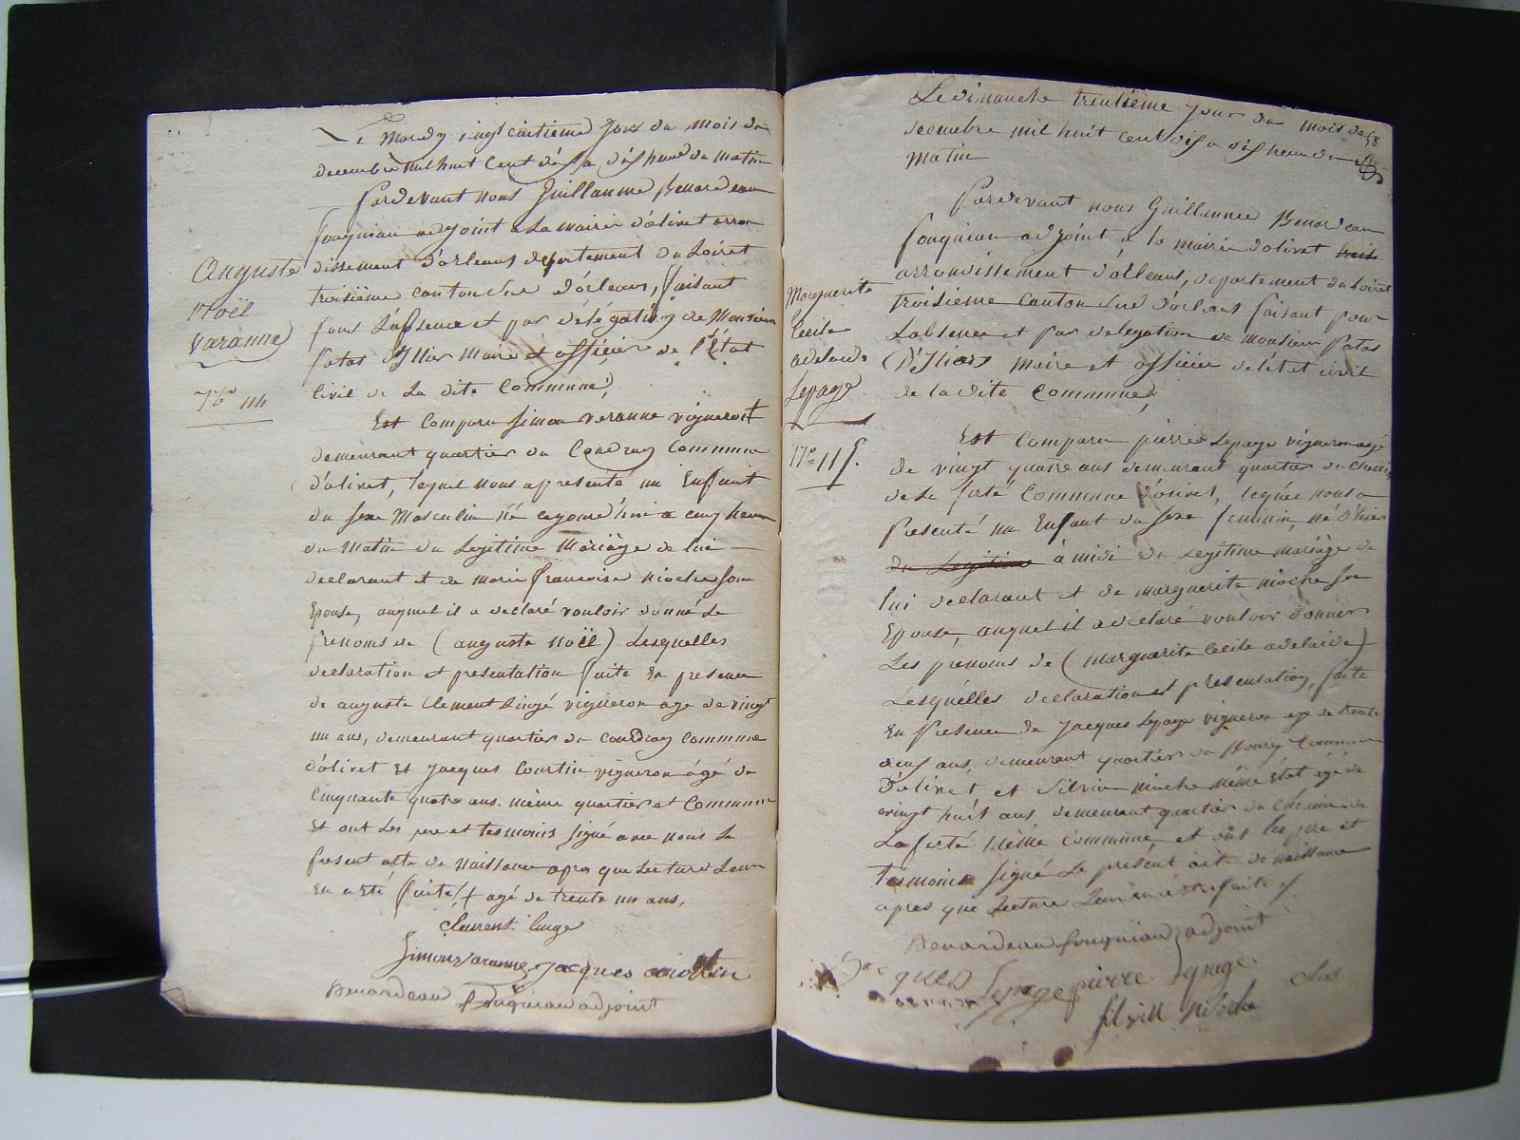 Le Mardy vingt cintieme Jour du Mois de
decembre mil huit Cent dis a dis heure du matin
Pardevant nous Guillaume Benardeau
fouqniau adjoint a La mairie d'olivet arron
Auguste
Noël
Varanne
N° 114
dissement d'orleans departement du Loiret
troisième canton Sud d'orleans, faisant
pour L'absence et par délégation de Monsieur
patas d'Illier Maire et officier de l'État
Civil de La dite Commune,
Est Comparu Simon Varanne vigneron +
demeurant quartier du Coudray Commune
d'olivet, lequel nous a présenté un Enfant
du sexe Masculin Né cejourd'hui a cinq heure
du Matin du Legitime Mariage de lui
declarant et de marie françoise nioche son
Epouse, auquel il a declaré vouloir donné Le
prenoms de (auguste noël) Lesquelles
declaration et presentation faite En presence
de auguste Clement Lingé vigneron age de vingt
un ans, demeurant quartier du coudray Commune
d'olivet Et Jacques Courtin vigneron âgé de
Cinquante quatre ans. même quartier et Commune
Et ont Les pere et tesmoins signé avec nous Le
present acte de Naissance apres que Lecture Leur
En a Eté faite / + agé de trente un ans,
Simon Varanne Jacques courtin
Benardeau fouqniau adjoint
Le Dimanche trentième Jour du mois de
58
decembre mil huit cent dis a dis heure du
Matin
Pardevant nous Guillaume Benardeau
fouqniau adjoint a la mairie d'olivet
arrondissement d'orleans, departement du Loiret
Marguerite
Cecile
adelaide
Lepage
N° 115.
troisieme Canton Sud d'orleans faisant pour
Labsence et par delegation de monsieur patas
(D'Illiers) maire et officier de létat civil
de la dite Commune,
Est Comparu pierre Lepage vigneron agé
de vingt quatre ans demeurant quartier du chemin
de la ferté Commune d'olivet, lequel nous a
Presenté un Enfant du sexe feminin, né d'hier
du Legitime à midi du Legitime mariage de
lui declarant et de marguerite nioche son
Epouse, auquel il a declaré vouloir donner
Les prenoms de (marguerite Cecile adelaide)
Lesquélles declaration et presentation, faite
En Presence de Jacques Lepage vigneron agé de trente
ans, demeurant quartier du Bourg Commune
D'olivet et Silvin nioche même État agé de
vingt huit ans demeurant quartier du chemin de
La ferté même Commune et ont les pere et
tesmoins signé Le présent acte de naissance
apres que Lecture Leur en a été faite
Benardeau fouqniau adjoint
Jacques Lepage pierre Lepage